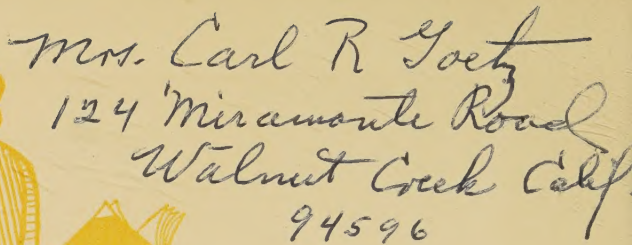 Mrs. Carl R Goetz
124 Miramonte Road
Walnut Creek Calif.
94596